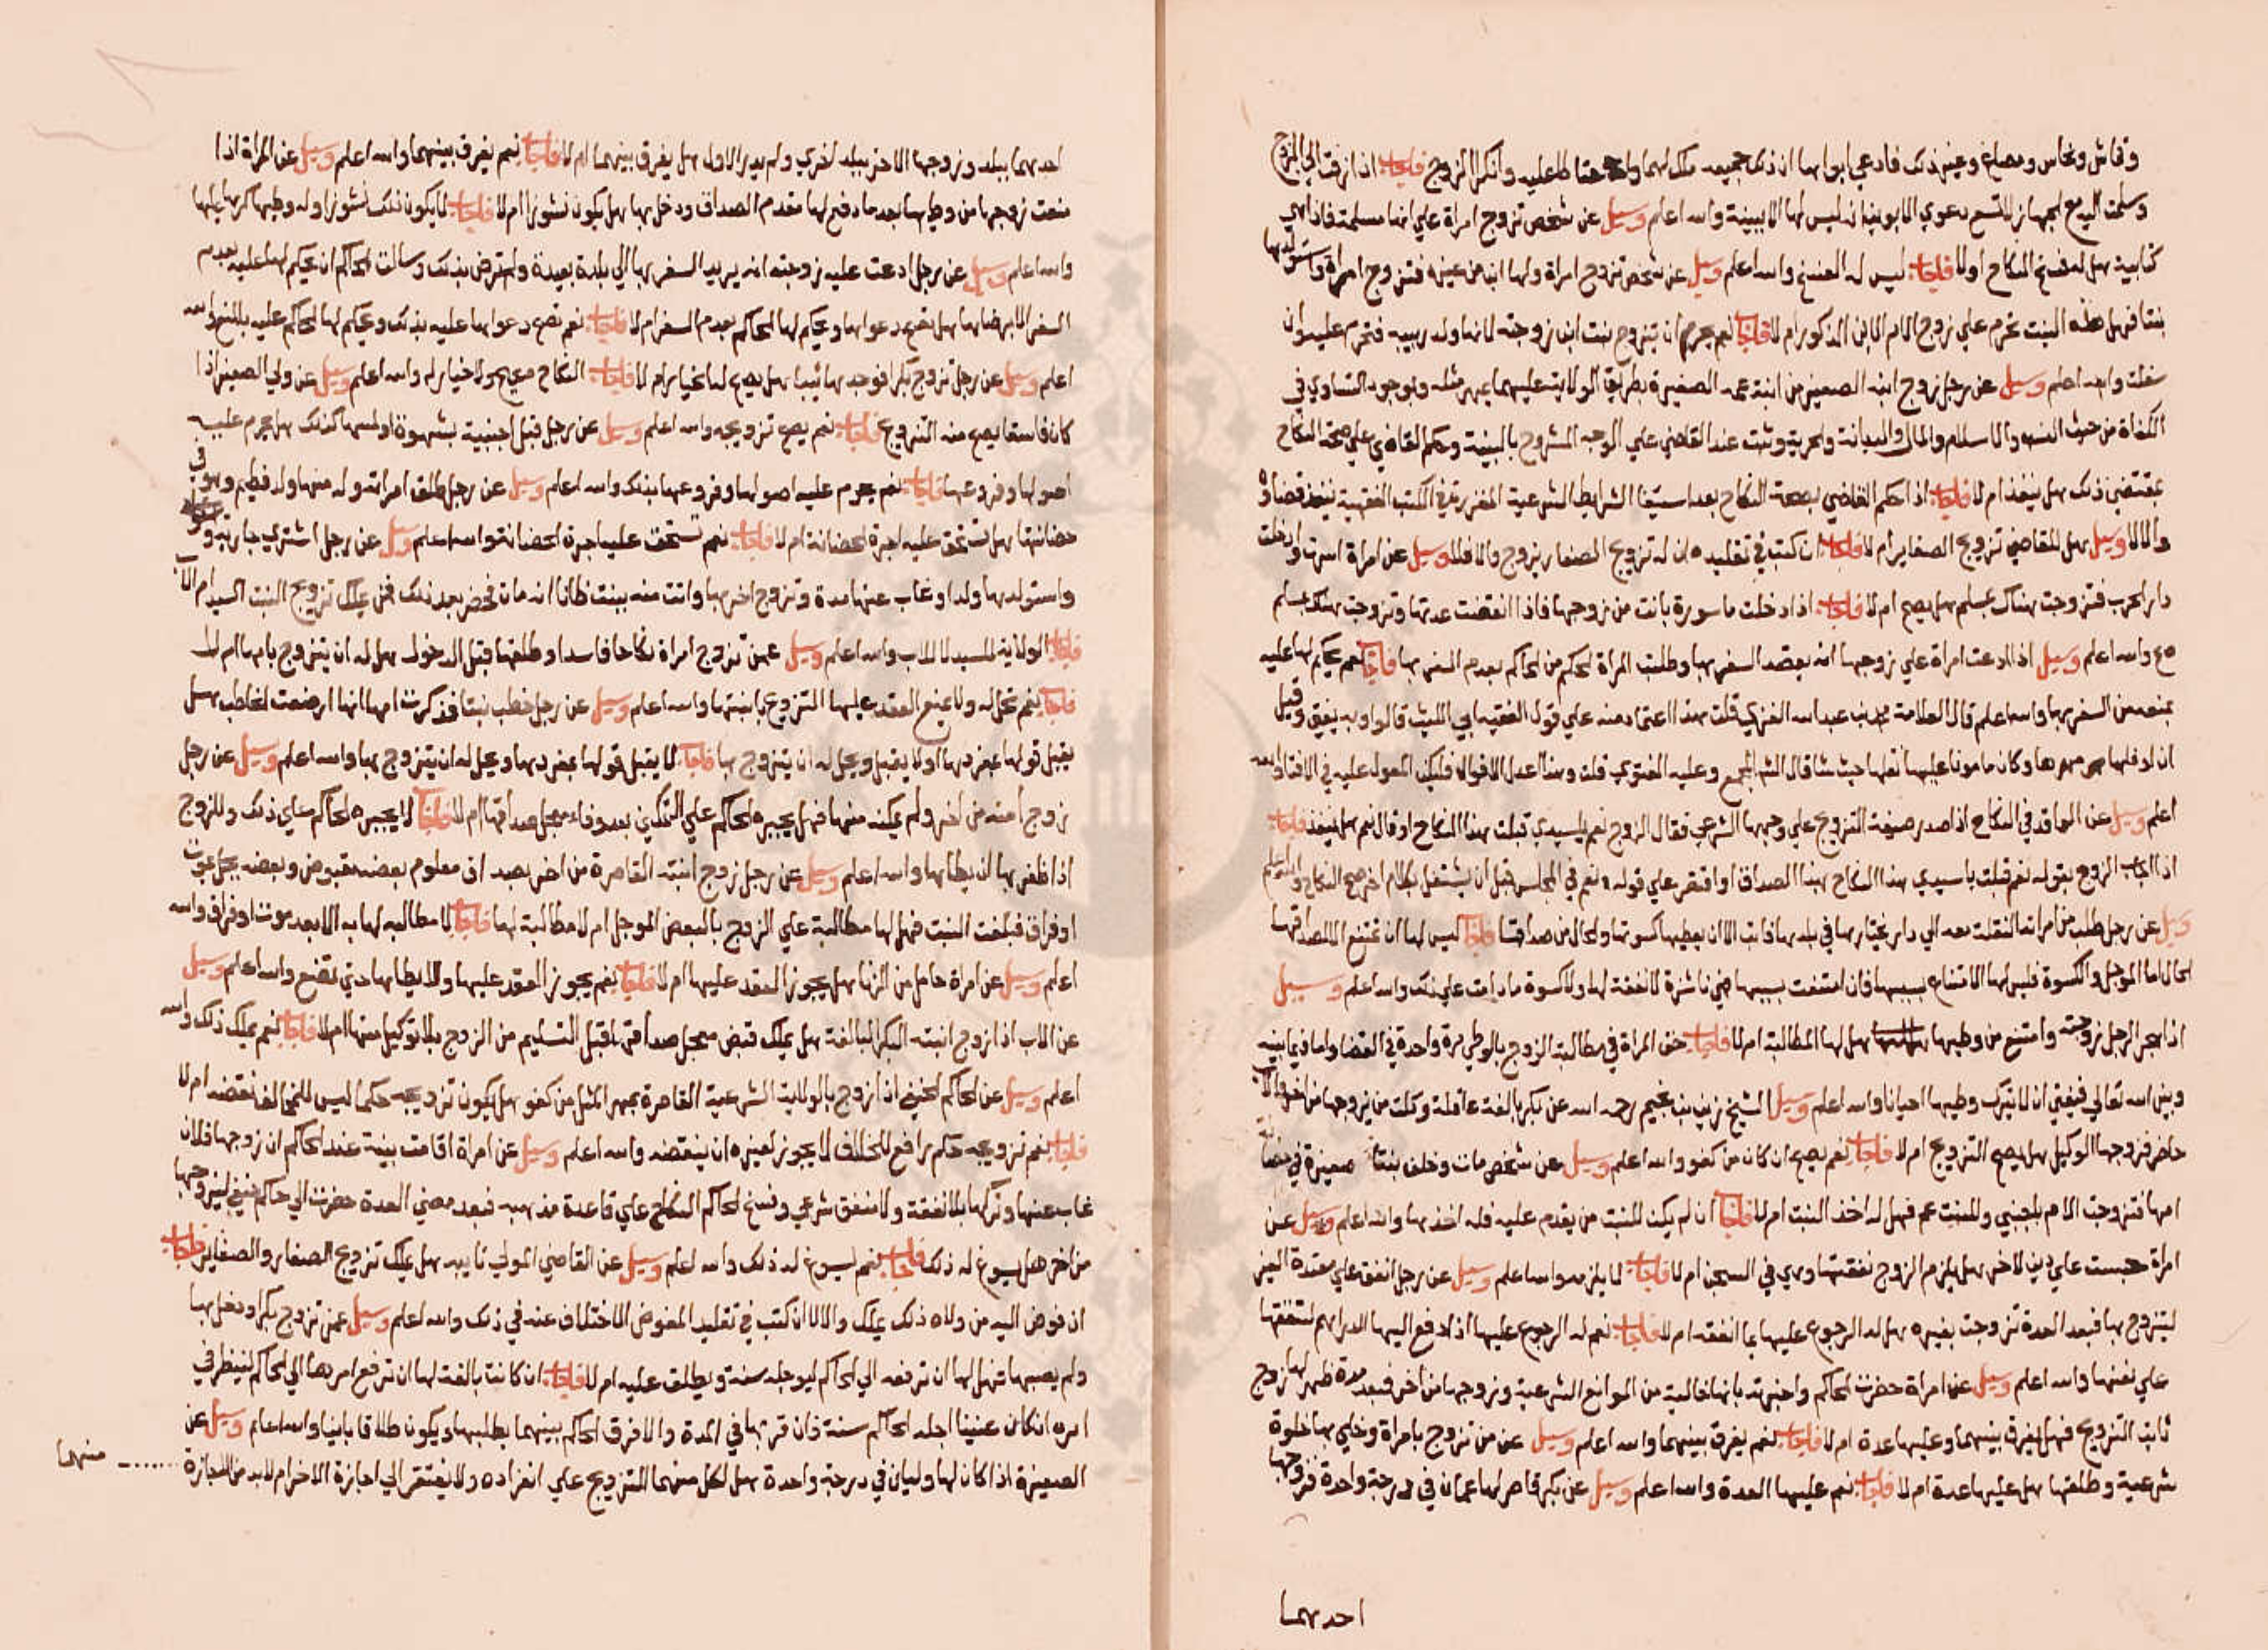 وقماش ونحاس ومصاغ وغير ذلك فادعي ابواها ان ذلك جميعه ملك لهما وانكر الزوج فاجاب اذا زفت الي الزوج
وسلمت اليه مع الجهاز لا تسمع دعوي الابوين انه ليس لها الا ببينة والله اعلم وسيل عن شخص تزوج امراة علي انها مسلمة فاذا هي
كتابية هل له فسخ النكاح اولا فاجاب ليس له الفسخ والله اعلم وسيل عن شخص تزوج امراة ولها ابن من غيره فتزوج امراة واستولدها
بنتا فهل هذه البنت تحرم علي زوج الام الابن المذكور ام لا فاجاب نعم يحرم ان يتزوج بنت ابن زوجته لانها ولد ربيبه فتحرم عليه وان
سفلت والله اعلم وسيل عن رجل زوج ابنه الصغير من ابنة عمه الصغيرة بطريق الولاية عليهما بمهر مثله وبوجود التساوي في
الكفاة من حيث النسب والاسلام والمال والديانة والحرية وثبت عند القاضي علي الوجه المشروح بالبينة وحكم القاضي علي صحة النكاح
بمقتضي ذلك هل ينفذ ام لا فاجاب اذا حكم القاضي بصحة النكاح بعد استيفا الشرايط الشرعية المقررة في الكتب الفقهية ينفذ قضاوه
والا لا وسيل هل للقاضي تزويج الصغاير ام لا فاجاب ان كتب في تقليده ان له تزويج الصغار يزوج والا فلا وسيل عن امراة اسرت وادخلت
دار الحرب فتزوجت هناك بمسلم هل يصح ام لا فاجاب اذا دخلت ماسورة بانت من زوجها فاذا انقضت عدتها وتزوجت هناك بمسلم
صح والله اعلم وسيل اذا ادعت امراة علي زوجها انه يقصد السفر بها وطلبت المراة الحكم من الحاكم بعدم السفر بها فاجاب نعم يحكم لها عليه
بمنعه من السفر بها والله اعلم قال العلامة محمد بن عبد الله الغزي قلت هذا اعتماد منه علي قول الفقيه ابي الليث قالوا وبه يفتي وقيل
ان اوفاها مهرها وكان مامونا عليها نقلها حيث شا قال الشر المجمع وعليه الفتوي قلت وهذا اعدل الاقوال فليكن المعول عليه في الافتا والله
اعلم وسيل عن العاقد في النكاح اذا صدر صيغة التزويج علي وجهها الشرعي فقال الزوج نعم يا سيدي قبلت هذا النكاح او قال نعم هل ينفذ فاجاب
اذا اجاب الزوج بقوله نعم قبلت يا سيدي هذا النكاح بهذا الصداق او اقتصر علي قوله نعم في المجلس قبل ان يشتغل بكلام اخر صح النكاح والله اعلم
وسيل عن رجل طلب من امراته النقلة معه الي دار يختارها في بلدها فابت الا ان يعطيها كسوتها والحال من صداقها فاجاب ليس لها ان تمتنع الا لصداقها
الحال اما الموجل والكسوة فليس لها الامتناع بسببها فان امتنعت بسببها فهي ناشزة لا نفقة لها ولا كسوة ما دامت علي ذلك والله اعلم وسيل
اذا هجر الرجل زوجته وامتنع من وطيها هل لها المطالبة ام لا فاجاب حق المراة في مطالبة الزوج بالوطي مرة واحدة في القضا واما فيما بينه
وبين الله تعالي فينبغي ان لا يترك وطيها احيانا والله اعلم وسيل الشيخ زين بن نجيم رحمه الله عن بكر بالغة عاقلة وكلت من يزوجها من اخر والاب
حاضر فزوجها الوكيل هل يصح التزويج ام لا فاجاب نعم يصح ان كان من كفو والله اعلم وسيل عن شخص مات وخلف بنتا صغيرة في حضانة
امها فتزوجت الام باجنبي وللبنت عم فهل له اخذ البنت ام لا فاجاب ان لم يكن للبنت من يقدم عليه فله اخذها والله اعلم وسيل عن
امراة حبست علي دين لاخر هل يلزم الزوج نفقتها وهي في السجن ام لا فاجاب لا يلزمه والله اعلم وسيل عن رجل انفق علي معتدة الغير
ليتزوج بها فبعد العدة تزوجت بغيره هل له الرجوع عليها بما انفقه ام لا فاجاب نعم له الرجوع عليها اذا دفع اليها الدراهم لتنفقها
علي نفسها والله اعلم وسيل عن امراة حضرت الحاكم واخبرته بانها خالية من الموانع الشرعية وزوجها من اخر فبعد مدة ظهر لها زوج
ثابت التزويج فهل يفرق بينهما وعليها عدة ام لا فاجاب نعم يفرق بينهما والله اعلم وسيل عن من تزوج بامراة وخلي بها خلوة
شرعية وطلقها هل عليها عدة ام لا فاجاب نعم عليها العدة والله اعلم وسيل عن بكر قاصر لها عمان في درجة واحدة فزوجها
احدهما
احدهما ببلد وزوجها الاخر ببلد اخري ولم يدر الاول هل يفرق بينهما ام لا فاجاب نعم يفرق بينهما والله اعلم وسيل عن المراة اذا
منعت زوجها من وطيها بعد ما دفع لها مقدم الصداق ودخل بها هل يكون نشوزا ام لا فاجاب لا يكون ذلك نشوزا وله وطيها كرها عليها
والله اعلم وسيل عن رجل ادعت عليه زوجته انه يريد السفر بها الي بلدة بعيدة واعترض بذلك وسالت الحاكم ان يحكم لها عليه بعدم
السفر الا برضاها هل تصح دعواها ويحكم لها الحاكم بعدم السفر ام لا فاجاب نعم تصح دعواها عليه بذلك ويحكم لها الحاكم عليه بالمنع والله
اعلم وسيل عن رجل تزوج بكرا فوجدها ثيبا هل يصح له الخيار ام لا فاجاب النكاح صحيح ولا خيار له والله اعلم وسيل عن ولي الصغير اذا
كان فاسقا يصح منه التزويج فاجاب نعم يصح تزويجه والله اعلم وسيل عن رجل قبل اجنبية بشهوة او لمسها كذلك هل يحرم عليه
اصولها وفروعها فاجاب نعم يحرم عليه اصولها وفروعها بذلك والله اعلم وسيل عن رجل طلق امراته وله منها ولد فطيم وهو في
حضانتها هل تستحق عليه اجرة الحضانة ام لا فاجاب نعم تستحق عليه اجرة الحضانة والله اعلم وسيل عن رجل اشتري جارية
واستولدها ولدا وغاب عنها مدة وتزوج اخر بها واتت منه ببنت ظانا انه مات فحضر بعد ذلك فمن يملك تزويج البنت السيد ام الاب
فاجاب الولاية للسيد لا للاب والله اعلم وسيل عمن تزوج امراة نكاحا فاسدا وطلقها قبل الدخول هل له ان يتزوج بامها ام لا
فاجاب نعم تحل له ولا يمنع العقد عليها التزوج بابنتها والله اعلم وسيل عن رجل خطب بنتا فذكرت امها انها ارضعت الخاطب هل
يقبل قولها بمفردها اولا يقبل ويحل له ان يتزوج بها فاجاب لا يقبل قولها بمفردها ويحل له ان يتزوج بها والله اعلم وسيل عن رجل
زوج امته من اخر ولم يمكنه منها فهل يجبره الحاكم علي التمكين بعد وفاء معجل صداقها ام لا فاجاب لا يجبره الحاكم علي ذلك وللزوج
اذا ظفر بها ان يطاها والله اعلم وسيل عن رجل زوج ابنته القاصرة من اخر بصداق معلوم بعضه مقبوض وبعضه يحل بموت
او فراق فبلغت البنت فهل لها مطالبة علي الزوج بالبعض الموجل ام لا مطالبة لها فاجاب لا مطالبة لها به الا بعد موت او فراق والله
اعلم وسيل عن امراة حامل من الزنا هل يجوز العقد عليها ام لا فاجاب نعم يجوز العقد عليها ولا يطاها حتي تضع والله اعلم وسيل
عن الاب اذا زوج ابنته البكر البالغة هل يملك قبض معجل صداقها قبل التسليم من الزوج بلا توكيل منها ام لا فاجاب نعم يملك ذلك والله
اعلم وسيل عن الحاكم الحنفي اذا زوج بالولاية الشرعية القاصرة بمهر المثل من كفو هل يكون تزويجه حكما ليس للمخالف نقضه ام لا
فاجاب نعم تزويجه حكم رافع للخلاف لا يجوز لغيره ان ينقضه والله اعلم وسيل عن امراة اقامت بينة عند الحاكم ان زوجها فلان
غاب عنها وتركها بلا نفقة ولا منفق شرعي وفسخ الحاكم النكاح علي قاعدة مذهبه فبعد مضي العدة حضرت الي حاكم حنفي ليزوجها
من اخر هل يسوغ له ذلك فاجاب نعم يسوغ له ذلك والله اعلم وسيل عن القاضي المولي نايبه هل يملك تزويج الصغار والصغاير فاجاب
ان فوض اليه من ولاه ذلك يملك والا لا ان كتب في تقليد المفوض الاختلاف عنه في ذلك والله اعلم وسيل عمن تزوج بكرا ودخل بها
ولم يصبها فهل لها ان ترفعه الي الحاكم ليوجله سنة ويطلق عليه ام لا فاجاب ان كانت بالغة لها ان ترفع امرها الي الحاكم لينظر في
امره ان كان عنينا اجله الحاكم سنة فان قربها في المدة والا فرق الحاكم بينهما بطلبها ويكون طلاقا باينا والله اعلم وسيل عن
الصغيرة اذا كان لها وليان في درجة واحدة هل لكل منهما التزويج علي انفراده ولا يفتقر الي اجازة الاخر ام لا بد من الاجازة
منهما